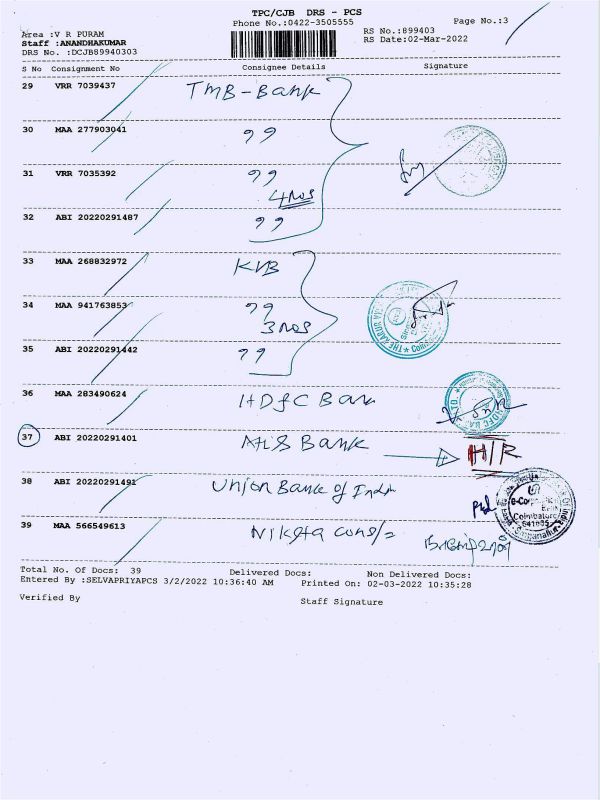 TPC/CJB DRS - PCS
Phone No.:0422-3505555
Page No.:3
Area :V R PURAM
Staff :ANANDHAKUMAR
DRS No. :DCJB89940303
RS No.:899403
RS Date:02-Mar-2022
S No Consignment No Consignee Details Signature
29 VRR 7039437 TMB-Bank
30 MAA 277903041 ,,
31 VRR 7035392 ,,
4 Nos
32 ABI 20220291487 ,,
33 MAA 268832972 KVB
34 MAA 941763853 ,,
3 Nos
35 ABI 20220291442 ,,
36 MAA 283490624 HDFC Bank
37 ABI 20220291401 Bank H/R
38 ABI 20220291491 Union Bank of India
39 MAA 566549613 Niketa
Total No. Of Docs: 39 Delivered Docs: Non Delivered Docs:
Entered By :SELVAPRIYAPCS 3/2/2022 10:36:40 AM Printed On: 02-03-2022 10:35:28
Verified By Staff Signature